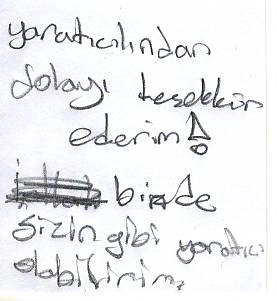 yaratıcılından
dolayı teşekkür
ederim!
birde
sizin gibi yaratıcı
olabilirim.